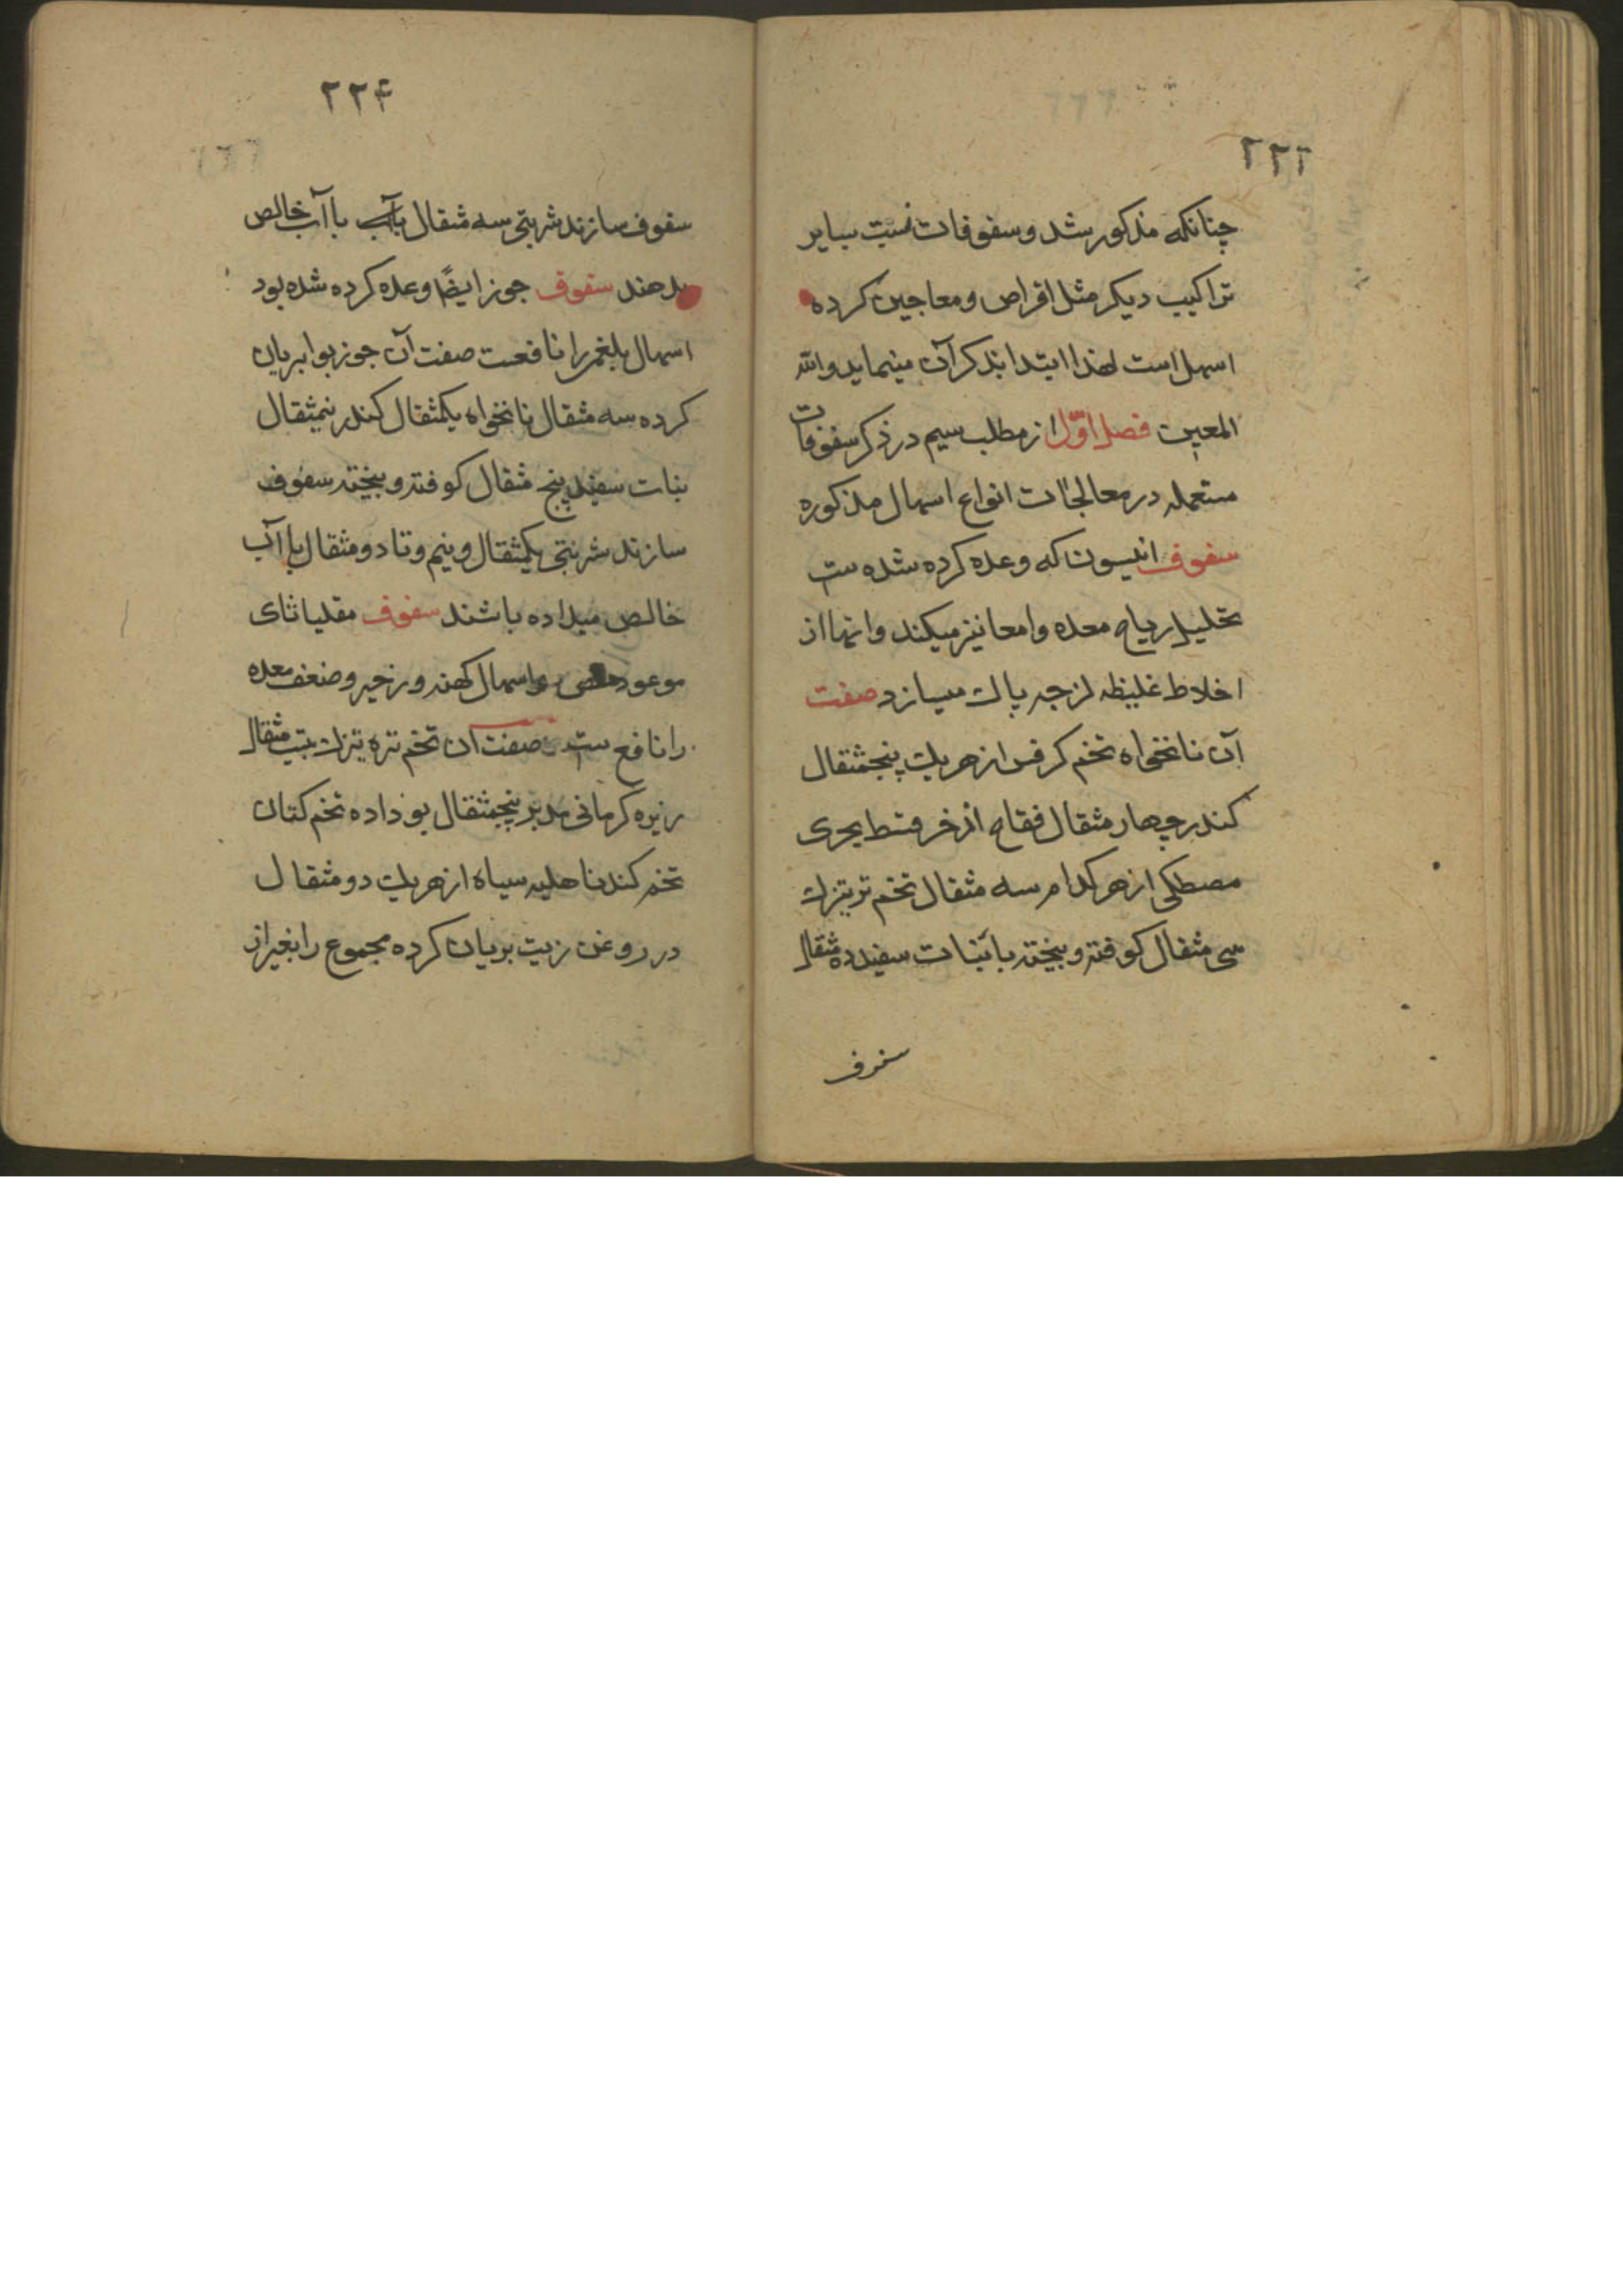 ۲۲۳
چنانکه مذکور شد و سفوفات نسبت بسایر
تراکیب دیکر مثل اقراص و معاجین کرده
اسهل است لهذا ابتدا بذکر آن مینماید والله
المعین فصل اوّل از مطلب سیم در ذکر سفوفات
مستعمله در معالجات انواع اسهال مذکوره
سفوف انیسون که وعده کرده شده ست
تحلیل ریاح معده و امعا نیز میکند و انها از
اخلاط غلیظه لزجه پاک میسازد صفت
آن نانخواه تخم کرفس از هریک پنجمثقال
کندر چهار مثقال فقاح اذخر قسط بحری
مصطکی از هر کدام سه مثقال تخم ترتیزک
سی مثقال کوفته و بیخته با نبات سفید ده مثقال
سفوف
۲۲۴
سفوف سازند شربتی سه مثقال بآب با آب خالص
بدهند سفوف جوز ایضًا وعده کرده شده بود
اسهال بلغمی را نافعست صفت آن جوز بوا بریان
کرده سه مثقال نانخواه یکمثقال کندر نیمثقال
نبات سفید پنج مثقال کوفته و بیخته سفوف
سازند شربتی یکمثقال و نیم و تا دو مثقال با آب
خالص میداده باشند سفوف مقلیاثای
موعود اسهال کهنه و زحیر و ضعف معده
را نافع ست صفت آن تخم تره تیزک بیست مثقال
زیره کرمانی مدبر پنجمثقال بو داده تخم کتان
تخم کندنا هلیه سیاه از هریک دو مثقال
در روغن زیت بریان کرده مجموع را بغیر از